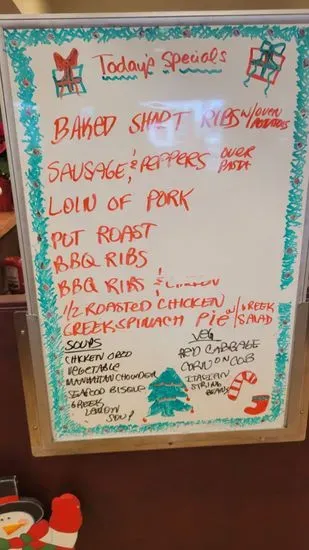 Today's Specials
BAKED SHORT RIBS W/OVEN POTATOES
SAUSAGE & PEPPERS OVER PASTA
LOIN OF PORK
POT ROAST
BBQ RIBS
BBQ RIBS &
1/2 ROASTED CHICKEN
GREEK SPINACH PIE W/GREEK SALAD
SOUPS
CHICKEN ORZO
VEGETABLE
MANHATTAN CHOWDER
SEAFOOD BISQUE
GREEK
LEMON
SOUP
VEG
RED CABBAGE
CORN ON COB
ITALIAN
STRING
BEANS